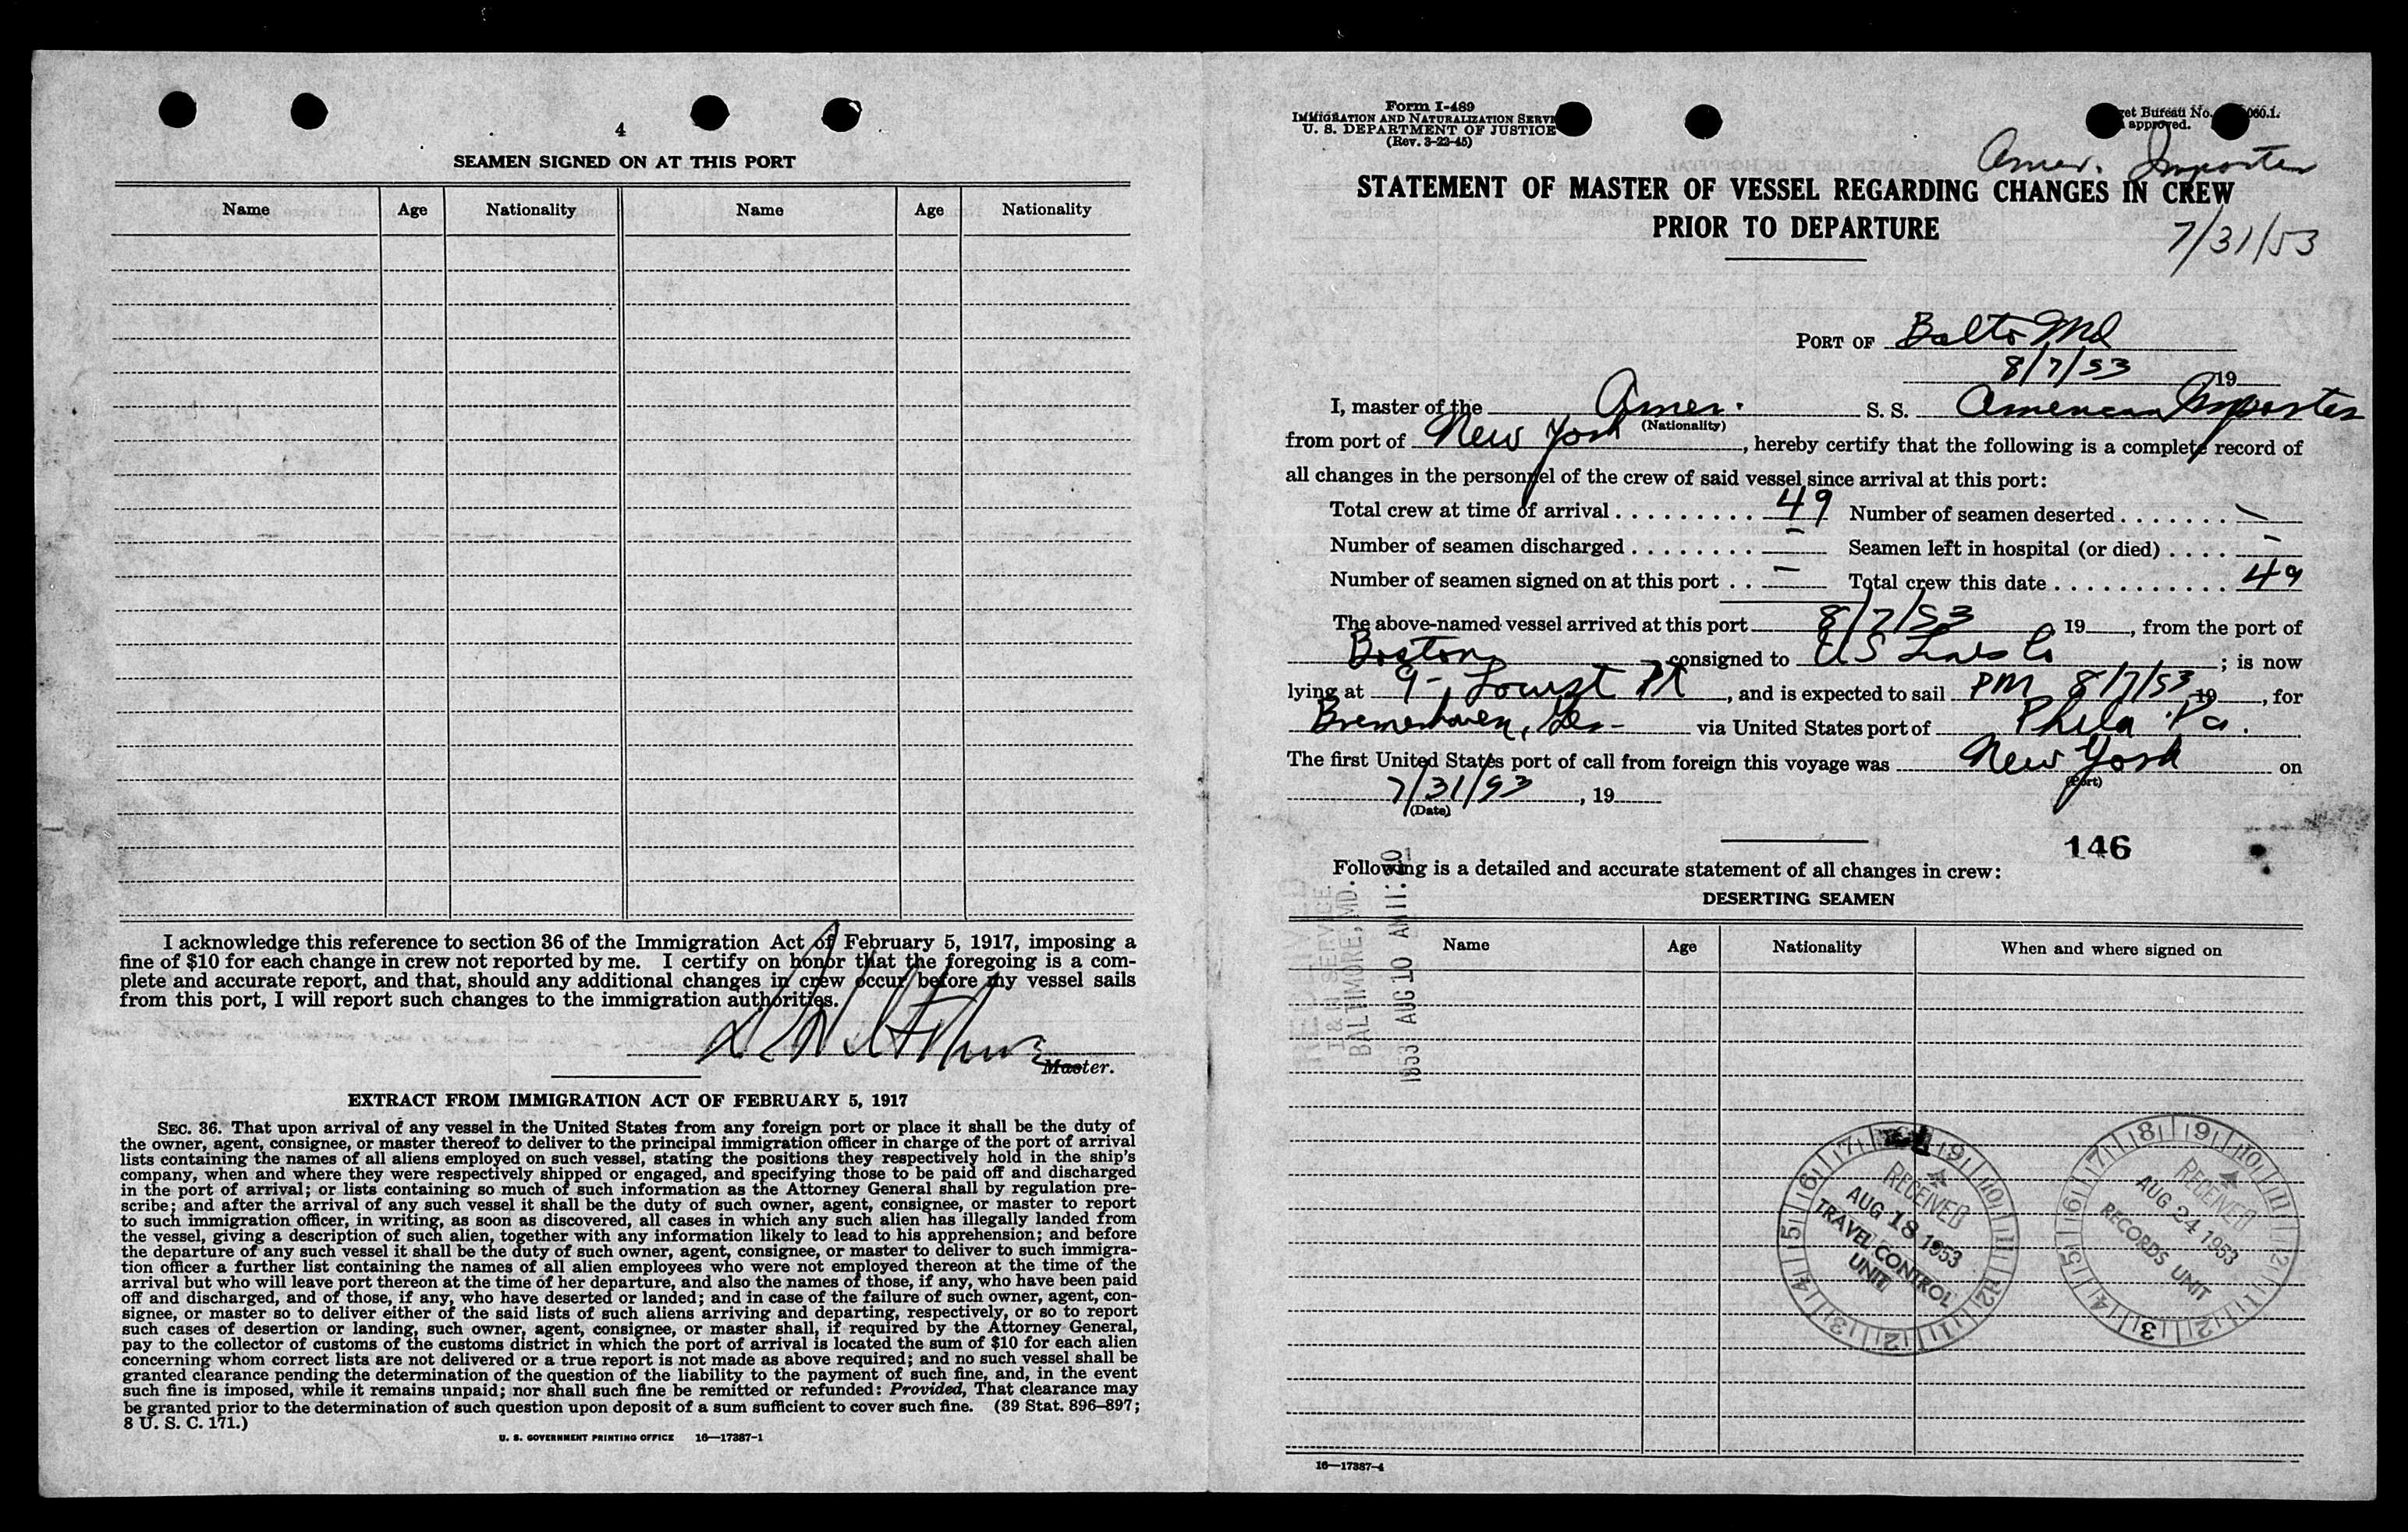 4
SEAMEN SIGNED ON AT THIS PORT
Name Age Nationality Name Age Nationality
I acknowledge this reference to section 36 of the Immigration Act of February 5, 1917, imposing a
fine of $10 for each change in crew not reported by me. I certify on honor that the foregoing is a com-
plete and accurate report, and that, should any additional changes in crew occur before my vessel sails
from this port, I will report such changes to the immigration authorities.
Master.
EXTRACT FROM IMMIGRATION ACT OF FEBRUARY 5, 1917
SEC. 36. That upon arrival of any vessel in the United States from any foreign port or place it shall be the duty of
the owner, agent, consignee, or master thereof to deliver to the principal immigration officer in charge of the port of arrival
lists containing the names of all aliens employed on such vessel, stating the positions they respectively hold in the ship's
company, when and where they were respectively shipped or engaged, and specifying those to be paid off and discharged
in the port of arrival; or lists containing so much of such information as the Attorney General shall by regulation pre-
scribe; and after the arrival of any such vessel it shall be the duty of such owner, agent, consignee, or master to report
to such immigration officer, in writing, as soon as discovered, all cases in which any such alien has illegally landed from
the vessel, giving a description of such alien, together with any information likely to lead to his apprehension; and before
the departure of any such vessel it shall be the duty of such owner, agent, consignee, or master to deliver to such immigra-
tion officer a further list containing the names of all alien employees who were not employed thereon at the time of the
arrival but who will leave port thereon at the time of her departure, and also the names of those, if any, who have been paid
off and discharged, and of those, if any, who have deserted or landed; and in case of the failure of such owner, agent, con-
signee, or master so to deliver either of the said lists of such aliens arriving and departing, respectively, or so to report
such cases of desertion or landing, such owner, agent, consignee, or master shall, if required by the Attorney General,
pay to the collector of customs of the customs district in which the port of arrival is located the sum of $10 for each alien
concerning whom correct lists are not delivered or a true report is not made as above required; and no such vessel shall be
granted clearance pending the determination of the question of the liability to the payment of such fine, and, in the event
such fine is imposed, while it remains unpaid; nor shall such fine be remitted or refunded: Provided, That clearance may
be granted prior to the determination of such question upon deposit of a sum sufficient to cover such fine. (39 Stat. 896–897;
8 U. S. C. 171.)
U. S. GOVERNMENT PRINTING OFFICE 16—17387-1
Form I-489
IMMIGRATION AND NATURALIZATION SERVI
U. S. DEPARTMENT OF JUSTICE
(Rev. 3-22-45)
et Bureau No. 060.1.
approved.
Amer. Importer
STATEMENT OF MASTER OF VESSEL REGARDING CHANGES IN CREW
PRIOR TO DEPARTURE
7/31/53
PORT OF Balto Md
8/7/53 19
I, master of the Amer. S. S. American Importer
(Nationality)
from port of New York, hereby certify that the following is a complete record of
all changes in the personnel of the crew of said vessel since arrival at this port:
Total crew at time of arrival 49 Number of seamen deserted –
Number of seamen discharged – Seamen left in hospital (or died) –
Number of seamen signed on at this port – Total crew this date 49
The above-named vessel arrived at this port 8/7/53 19, from the port of
Boston consigned to US Lines Co; is now
lying at 9 - Locust Pt, and is expected to sail PM 8/7/53 19, for
Bremerhaven, Ger- via United States port of Phila Pa.
The first United States port of call from foreign this voyage was New York on
(Port)
7/31/53, 19
(Date)
146
Following is a detailed and accurate statement of all changes in crew:
DESERTING SEAMEN
Name Age Nationality When and where signed on
I & N SERVICE
BALTIMORE, MD.
1953 AUG 10 AM 11:
RECEIVED
AUG 18 1953
TRAVEL CONTROL
UNIT
RECEIVED
AUG 24 1953
RECORDS UNIT
16—17387-4